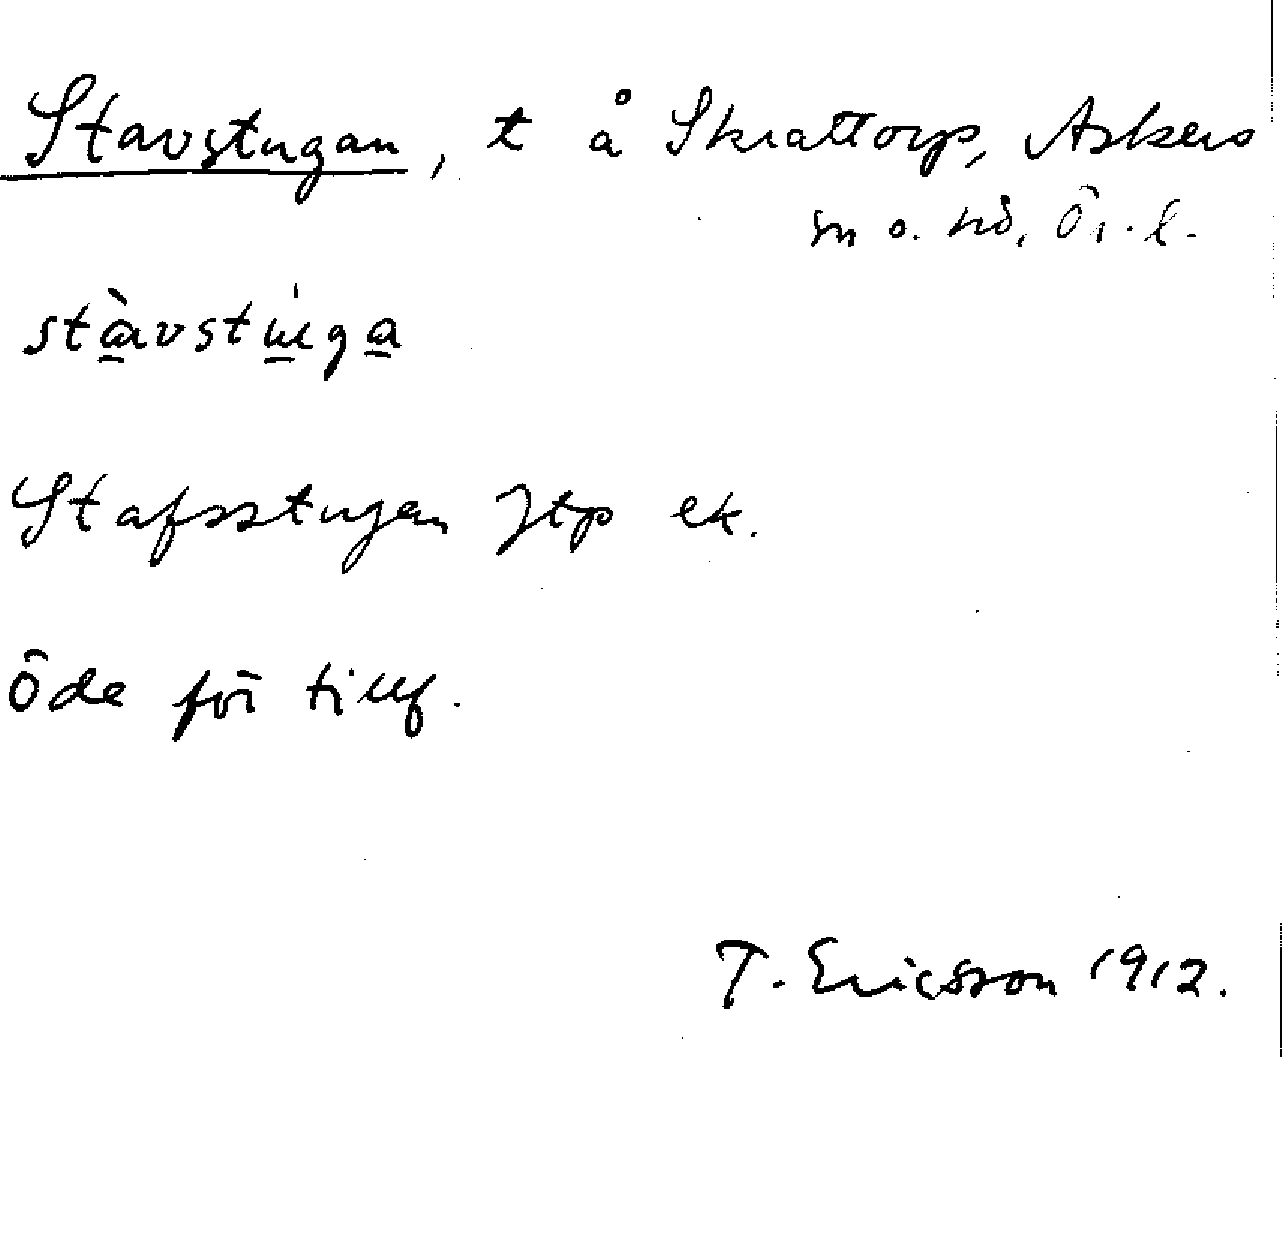 Stavstugan, t å Skrattorp, Askers
sn o. hd, Ör. l.
stàvstuga
Stafsstugan Jtp ek.
Öde för tillf.
T. Ericsson 1912.